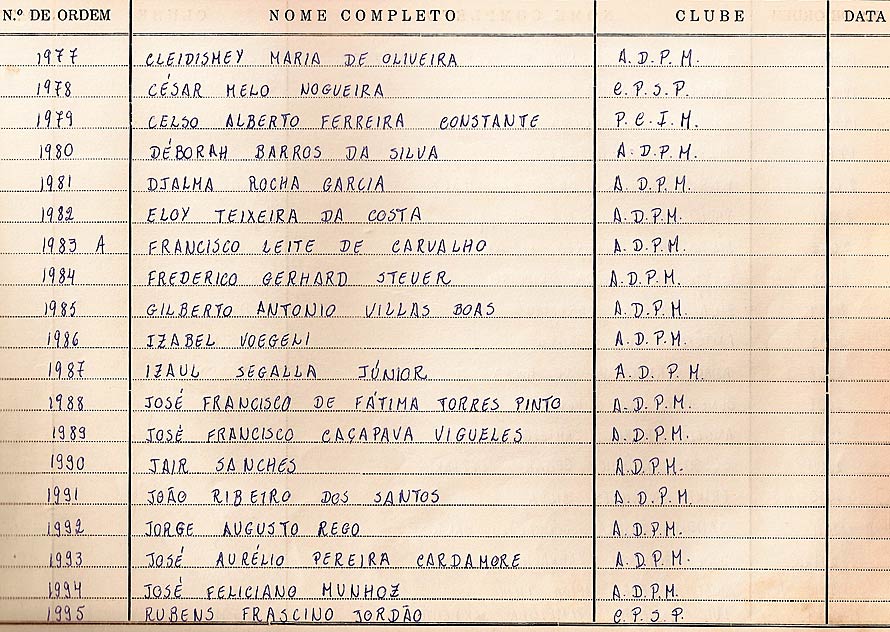 N.º DE ORDEM NOME COMPLETO CLUBE DATA
1977 CLEIDISMEY MARIA DE OLIVEIRA A.D.P.M.
1978 CÉSAR MELO NOGUEIRA C.P.S.P.
1979 CELSO ALBERTO FERREIRA CONSTANTE P.C.I.M.
1980 DÉBORAH BARROS DA SILVA A.D.P.M.
1981 DJALMA ROCHA GARCIA A.D.P.M.
1982 ELOY TEIXEIRA DA COSTA A.D.P.M.
1983 A FRANCISCO LEITE DE CARVALHO A.D.P.M.
1984 FREDERICO GERHARD STEUER A.D.P.M.
1985 GILBERTO ANTONIO VILLAS BOAS A.D.P.M.
1986 IZABEL VOEGELI A.D.P.M.
1987 IZAUL SEGALLA JÚNIOR A.D.P.M.
1988 JOSÉ FRANCISCO DE FÁTIMA TORRES PINTO A.D.P.M.
1989 JOSÉ FRANCISCO CAÇAPAVA VIGUELES A.D.P.M.
1990 JAIR SANCHES A.D.P.M.
1991 JOÃO RIBEIRO DOS SANTOS A.D.P.M.
1992 JORGE AUGUSTO REGO A.D.P.M.
1993 JOSÉ AURÉLIO PEREIRA CARDAMORE A.D.P.M.
1994 JOSÉ FELICIANO MUNHOZ A.D.P.M.
1995 RUBENS FRASCINO JORDÃO C.P.S.P.